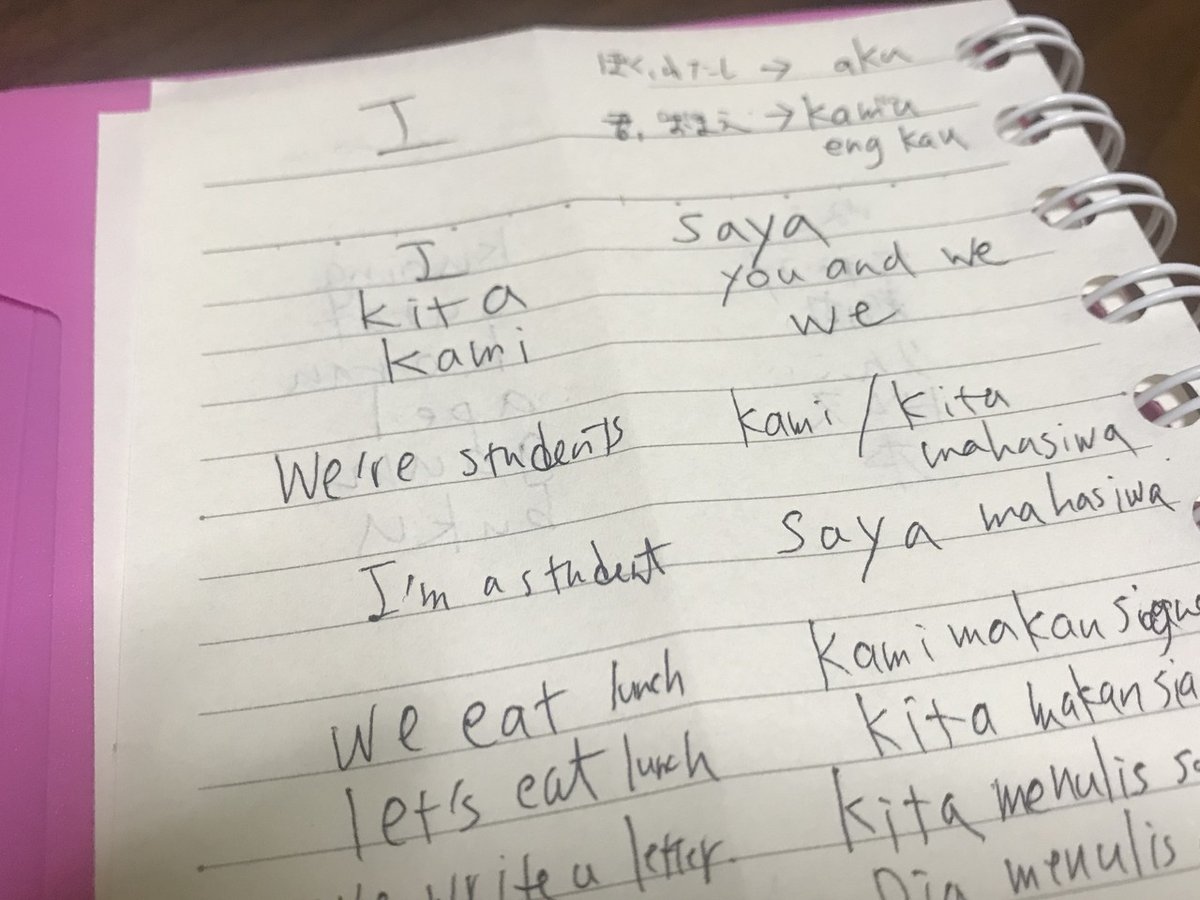 I
ぼく、わたし → aku
君、おまえ → kamu
eng kau
I saya
kita you and we
kami we
We're students kami / kita
mahasiwa
I'm a student Saya mahasiwa
we eat lunch kami makan
let's eat lunch kita makan
write a letter kita menulis
Dia menulis